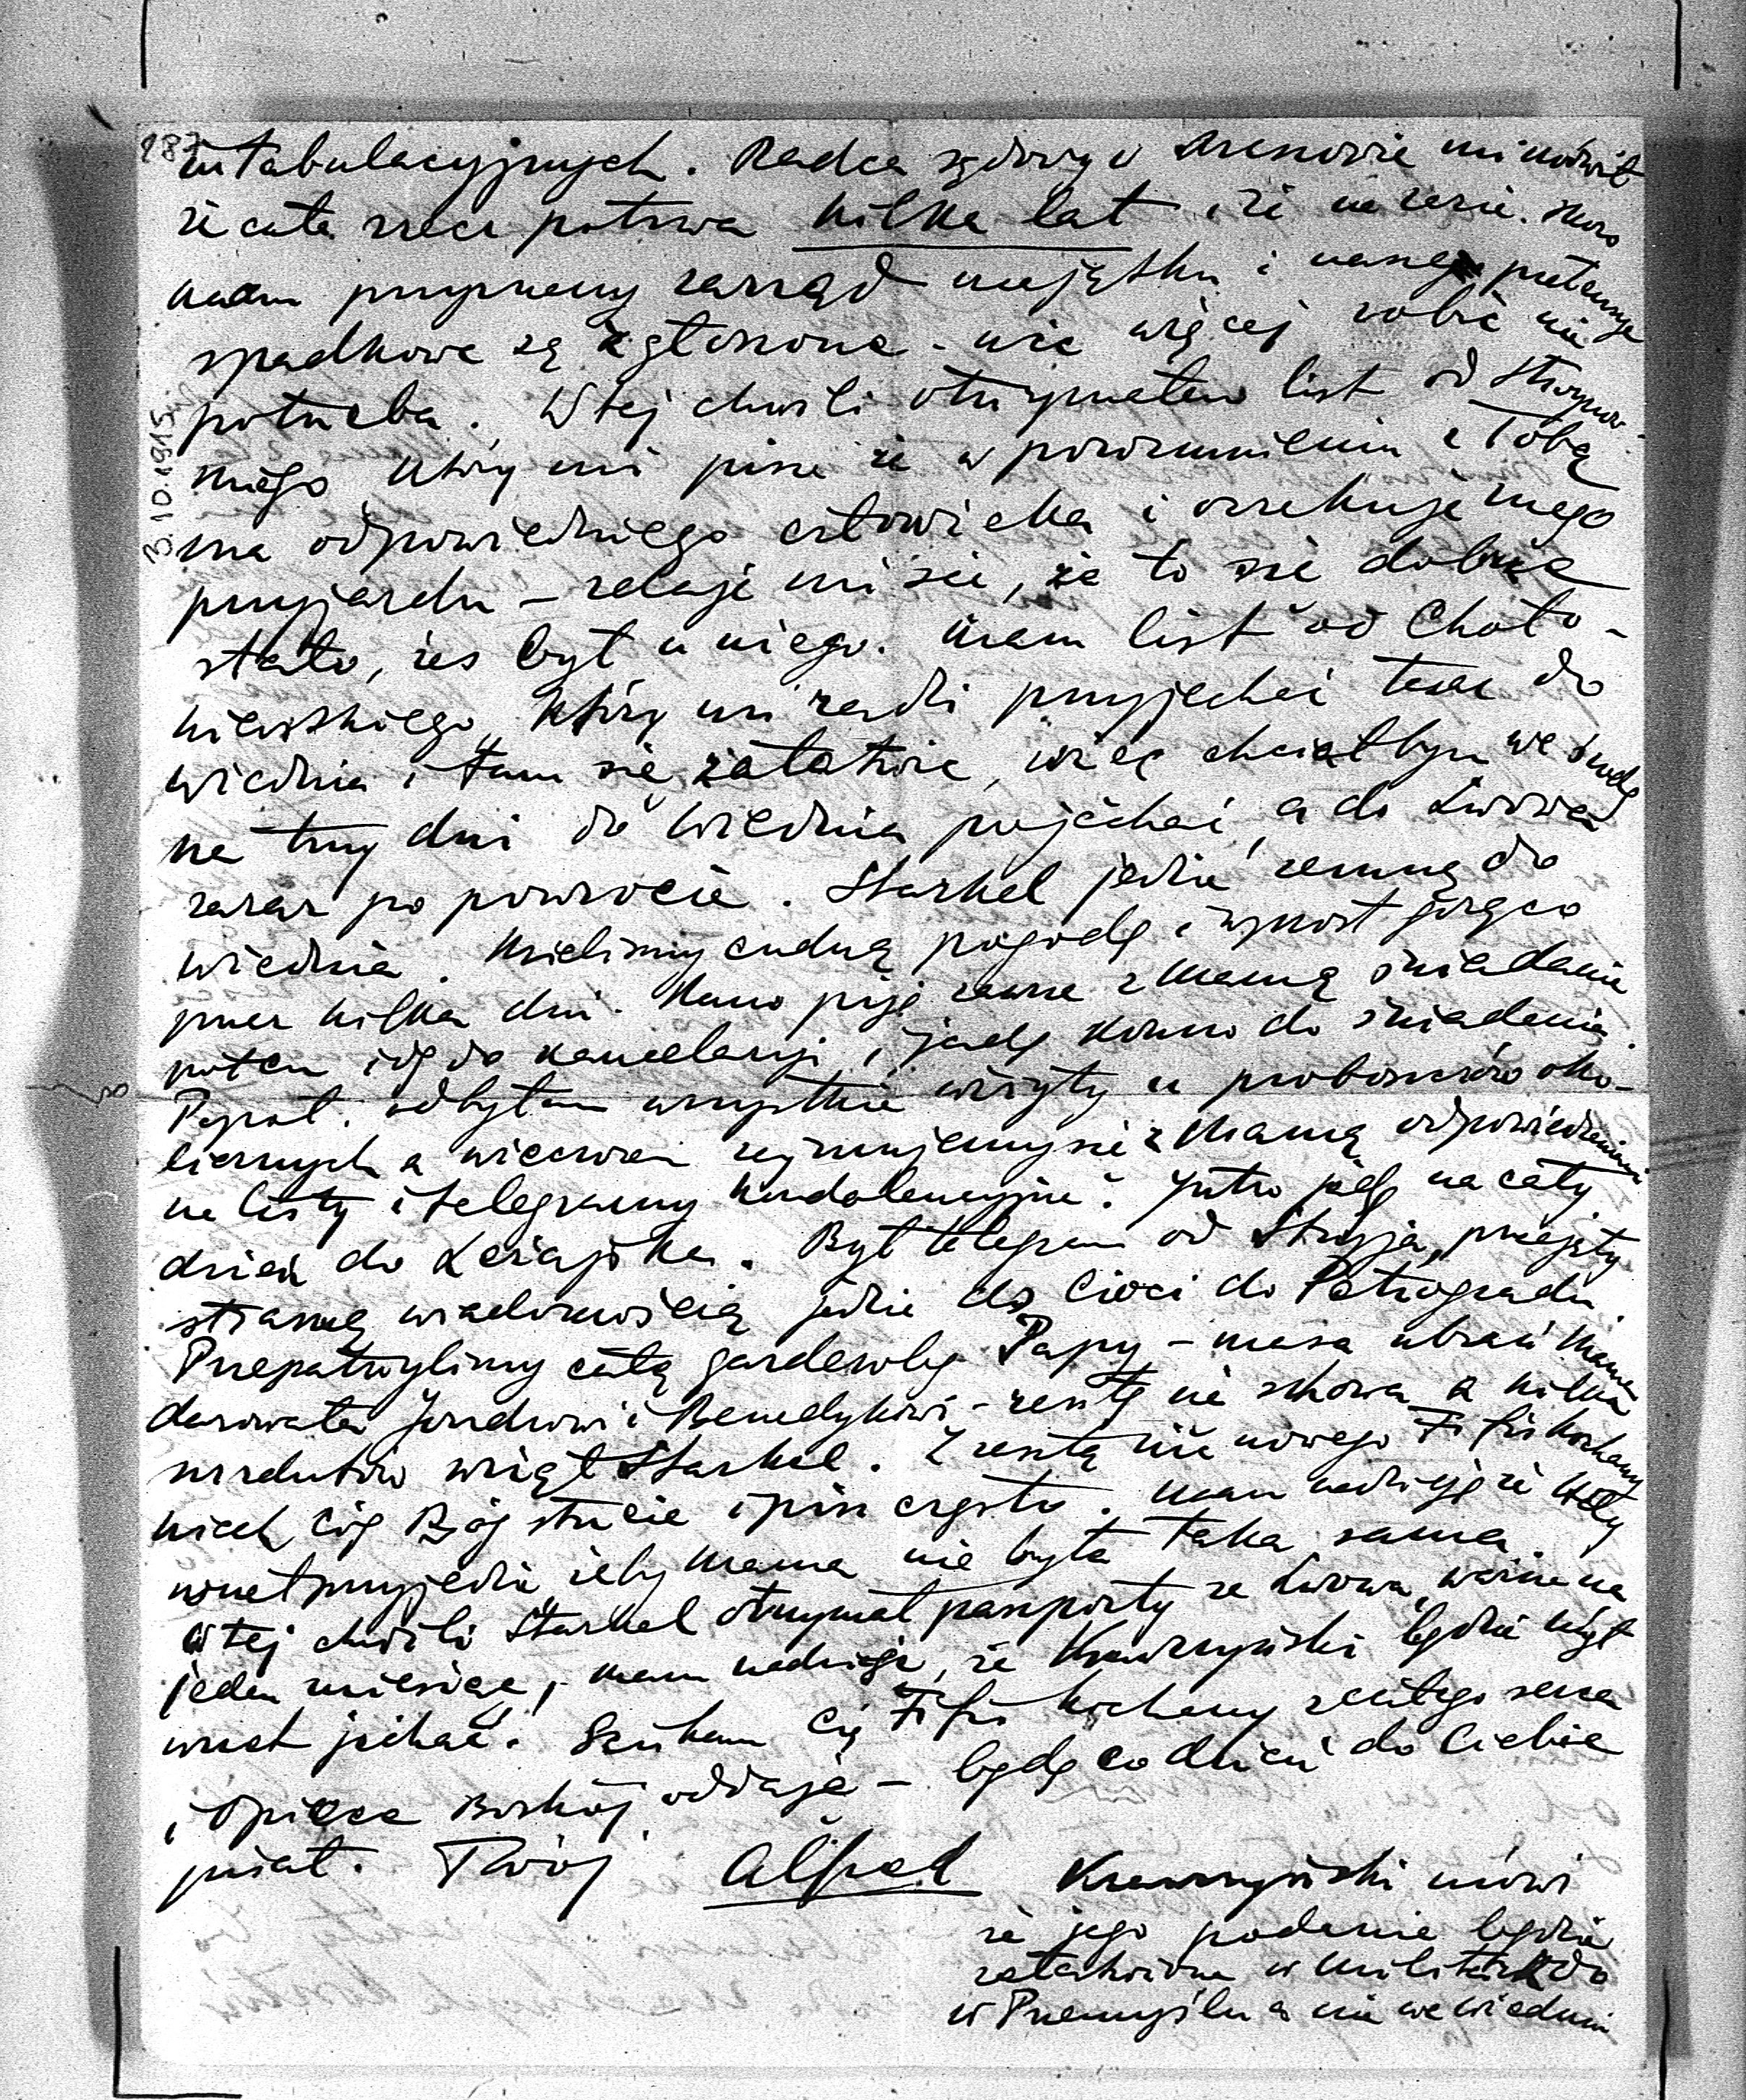 287
intabulacyjnych. Radca sądowy v mi mówił
że cała rzecz potrwa kilka lat, że na razie skoro
nam przyznany zarząd majątku i nasze pretensye
spadkowe są zgłoszone - nic więcej robić nie
potrzeba. W tej chwili otrzymałem list od
który mi pisze że w porozumieniu z Tobą
ma odpowiedniego człowieka i oczekuje mego
przyjazdu - zdaje mi sie, że to się dobrze
stało, żeś był u niego. Mam list od Choło-
niewskiego, który mi radzi przyjechać teraz do
Wiednia i tam się załatwić, więc chciałbym we środę
na trzy dni do Wiednia pojechać, a do Lwowa
zaraz po powrocie. Starkel jedzie zemną do
Wiednia. Mieliśmy cudną pogodę i wprost gorąco
przez kilka dni. Rano piję zawsze z Mamą śniadanie
potem idę do kancelaryi, i jadę konno do śniadania.
Popoł. odbyłem wszystkie wizyty u proboszczów oko-
licznych a wieczorem zajmujemy się z Mamą odpowiedziami
na listy i telegramy kondolencyjne. Jutro jadę na cały
dzień do Leżajska. Był telegram od Stryja, przejęty
straszną wiadomością jedzie do Cioci do Petrogradu.
Przepatrzyliśmy całą garderobę Papy - masa ubrań Mama
darowała Jędrzowi i Benedykowi - resztę się schowa a kilka
surdutów wziął Starkel. Zresztą nic nowego Fifiś kochany
niech Cię Bóg strzeże i pisz często. Mam nadzieję że
wnet przyjedzie żeby Mama nie była taka sama.
W tej chwili Starkel otrzymał paszporty ze Lwowa, ważne na
jeden miesiąc, mam nadzieję, że Krawczyński będzie mógł
wnet jechać. Ściskam Cię Fifiś kochany z całego serca
i Opiece Boskiej oddaję - będę codzień do Ciebie
pisał. Twój Alfred
Krawczyński mówi
że jego podanie będzie
załatwione w
w Przemyślu a nie we Wiedniu
3.10.1915